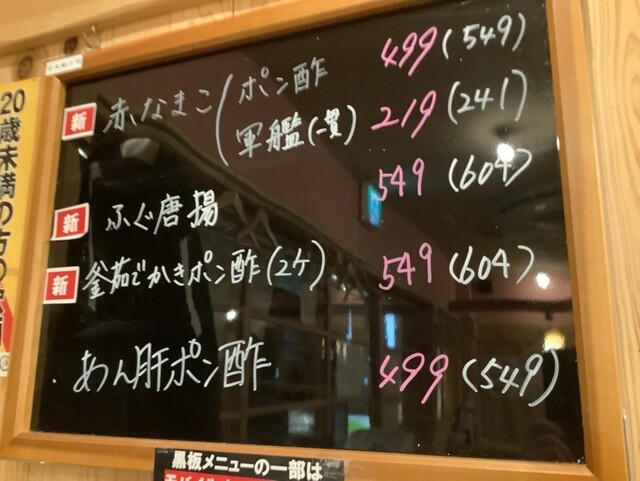 新 赤なまこ ( ポン酢 499 (549)
軍艦 (一貫) 219 (241)
新 ふぐ唐揚 549 (604)
新 釜茹でかきポン酢 (2ケ) 549 (604)
・あん肝ポン酢 499 (549)
20歳未満の方の
黒板メニューの一部は